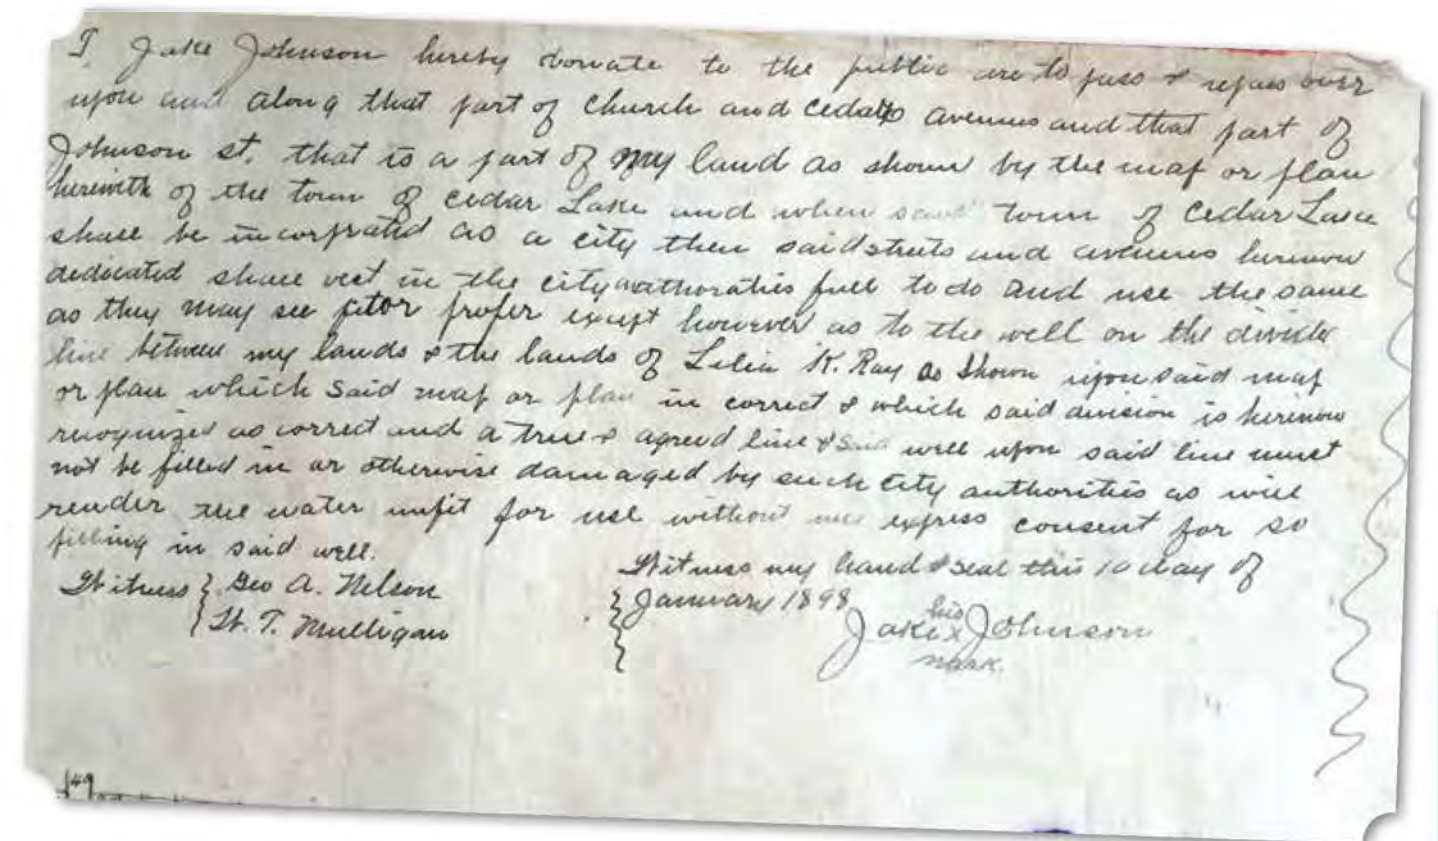 I, Jake Johnson hereby donate to the public use to pass & repass over
upon and along that part of Church and Cedar avenues and that part of
Johnson st. that is a part of my land as shown by the map or plan
herewith of the town of Cedar Lake and when said town of Cedar Lake
shall be incorprated as a city then said streets and avenues hereinow
dedicated shall vest in the city authoraties full to do and use the same
as they may see fit or proper except however as to the well on the divide
line between my lands & the lands of Lelia K. Ray as shown upon said map
or plan which said map or plan in correct & which said division is hereinow
recognized as correct and a true & agreed line & said well upon said line must
not be filled in or otherwise damaged by such City authorities as will
render the water unfit for use without my express consent for so
filling in said well.
Witness my hand & seal this 10 day of
January 1898
Witness } Geo A. Nelson
} W. T. Mulligan
his
Jake x Johnson
mark.
149